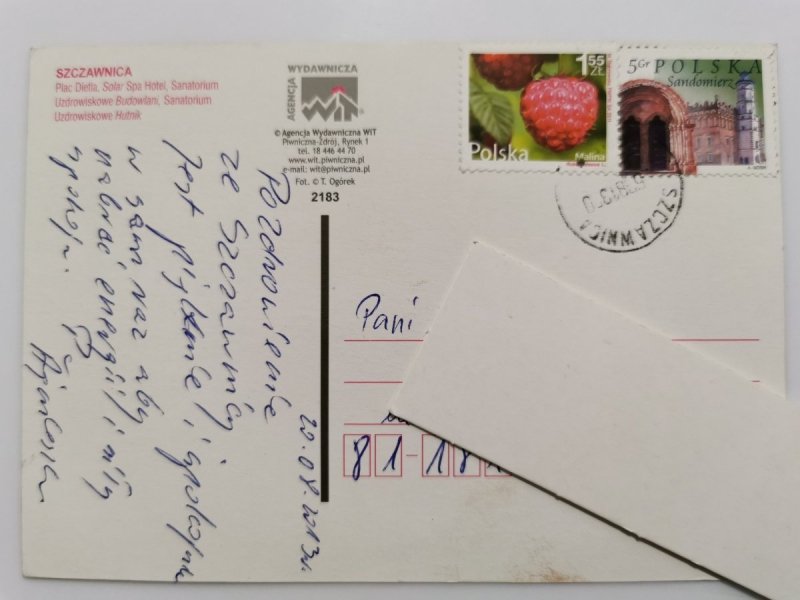 SZCZAWNICA
Plac Dietla, Solar Spa Hotel, Sanatorium
Uzdrowiskowe Budowlani, Sanatorium
Uzdrowiskowe Hutnik
AGENCJA
WYDAWNICZA
WIT
© Agencja Wydawnicza WIT
Piwniczna-Zdrój, Rynek 1
tel. 18 446 44 70
www.wit.piwniczna.pl
e-mail: wit@piwniczna.pl
Fot. © T. Ogórek
2183
1,55 ZŁ
Polska
Malina
5Gr POLSKA
Sandomierz
SZCZAWNICA
20.08.2013r.
Pozdrowienia
ze Szczawnicy
Jest pięknie i spokojnie
w sam raz aby
nabrać energii i siły
spokoju.
Agnieszka
Pani
81-18